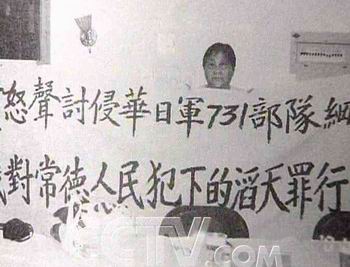 怒聲討侵華日軍731部隊細
對常德人民犯下的滔天罪行
CCTV.com